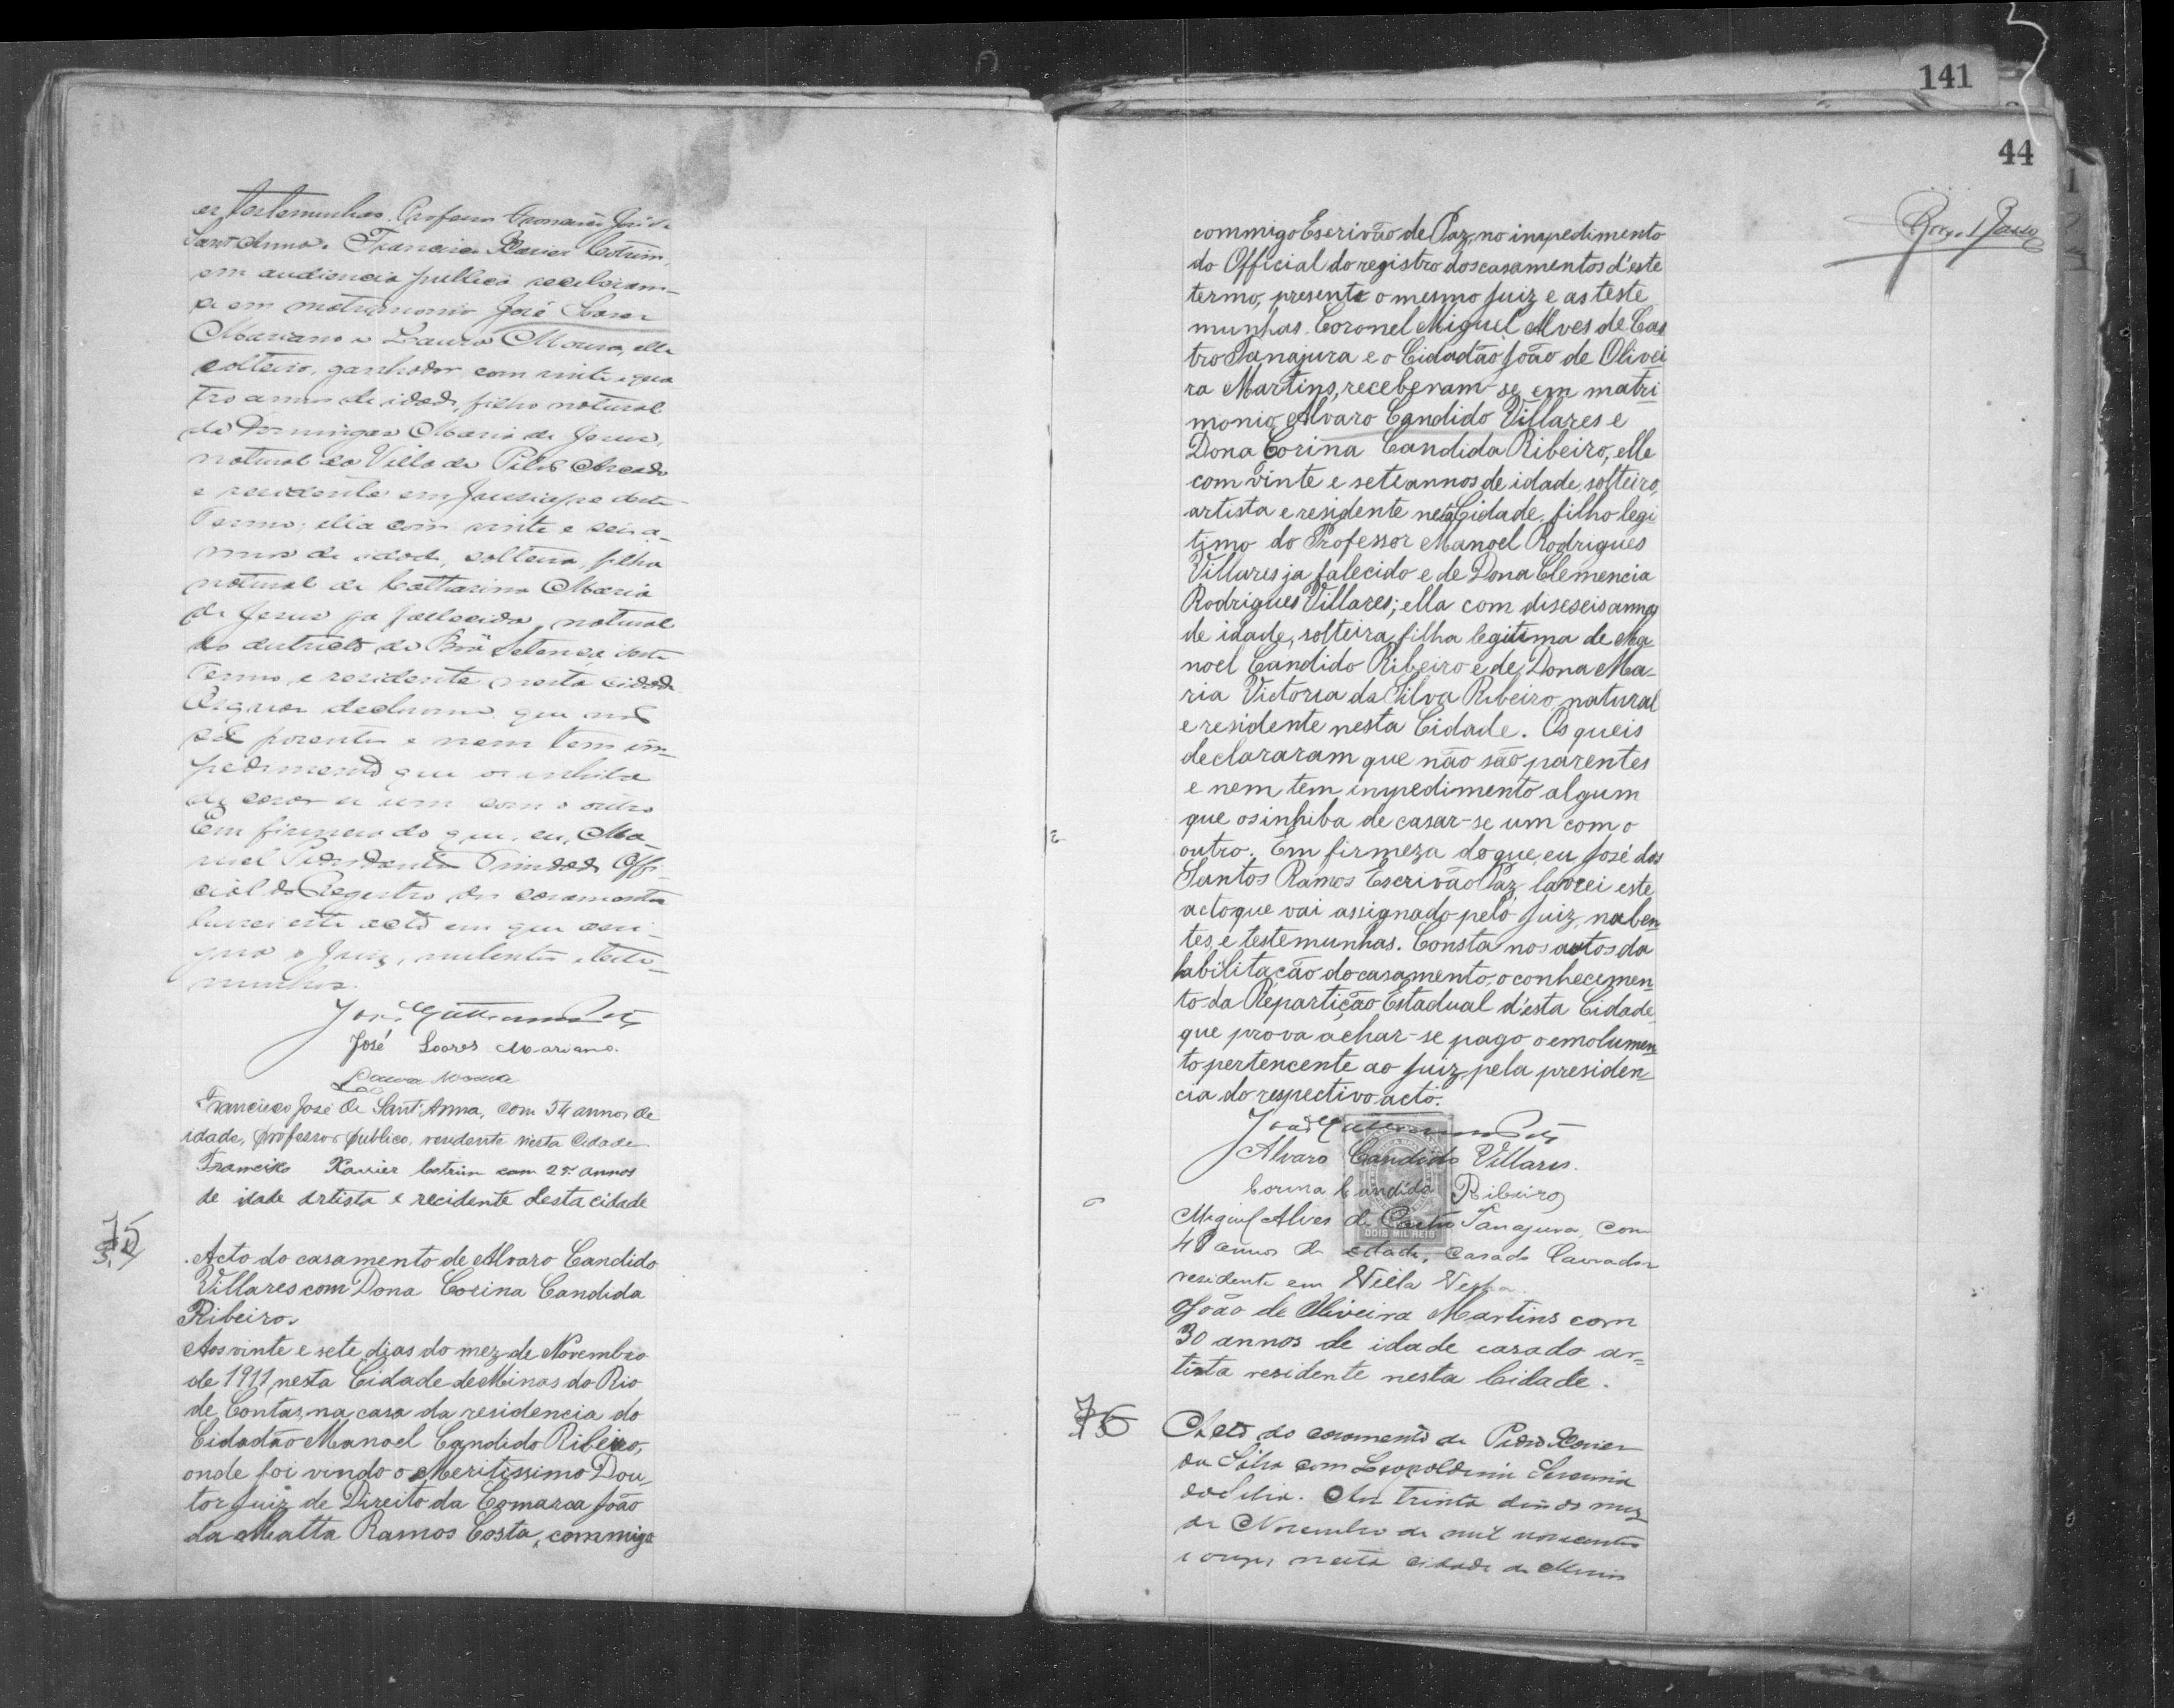 as testemunhas Professor Francisco José de
Sant'Anna e Francisco Xavier Cotrim,
em audiencia publica receberam-
se em matrimonio José Soares
Mariano e Laura Moura, elle
solteiro, ganhador, com vinte e qua
tro annos de idade, filho natural
de Domingas Maria de Jesus,
natural da Villa de Pilão Arcado
e residente em Jussiape deste
Termo; ella com vinte e seis a-
nnos de idade, solteira, filha
natural de Catharina Maria
de Jesus ja fallecida, natural
do districto de Bôa Sentença deste
Termo, e residente nesta cidade
Os quaes declararam que não
são parentes e nem tem im-
pedimento que os inhiba
de casar-se um com o outro
Em firmeza do que, eu, Ma-
noel Trindade Offi-
cial do Registro dos casamentos
lavrei este acto em que assi-
gna o Juiz, nubentes e teste-
munhas.
José Soares Mariano.
Laura Moura
Francisco José de Sant'Anna, com 54 annos de
idade, professor publico, residente nesta Cidade
Francisco Xavier Cotrim com 25 annos
de idade artista e recidente desta cidade
75
Acto do casamento de Alvaro Candido
Villares com Dona Corina Candida
Ribeiro.
Aos vinte e sete dias do mez de Novembro
de 1911 nesta Cidade de Minas do Rio
de Contas, na casa da residencia do
Cidadão Manoel Candido Ribeiro,
onde foi vindo o Meritissimo Dou-
tor Juiz de Direito da Comarca João
da Matta Ramos Costa, commigo
141
44
commigo Escrivão de Paz, no impedimento
do Official do registro dos casamentos d'este
termo, presente o mesmo Juiz e as teste
munhas Coronel Miguel Alves de Cas
tro Tanajura e o Cidadão João de Olivei
ra Martins, receberam-se em matri
monio, Alvaro Candido Villares e
Dona Corina Candida Ribeiro, elle
com vinte e sete annos de idade, solteiro,
artista e residente nesta Cidade, filho legi
timo do Professor Manoel Rodrigues
Villares ja falecido e de Dona Clemencia
Rodrigues Villares; ella com diseseis annos
de idade, solteira, filha legitima de Ma
noel Candido Ribeiro e de Dona Ma-
ria Victoria da Silva Ribeiro, natural
e residente nesta Cidade. Os queis
declararam que não são parentes
e nem tem impedimento algum
que os inhiba de casar-se um com o
outro. Em firmeza do que, eu José dos
Santos Ramos Escrivão Paz lavrei este
acto que vai assignado pelo Juiz, nuben
tes, e testemunhas. Consta nos autos da
habilitação do casamento, o conhecimen-
to da Repartição Estadual d'esta Cidade
que prova achar-se pago o emolumen
to pertencente ao Juiz pela presiden-
cia do respectivo acto.
Alvaro Candido Villares.
Corina Candida Ribeiro
DOIS MIL REIS
Miguel Alves de Castro Tanajura, com
48 annos de edade, casado lavrador
residente em Villa Velha.
João de Oliveira Martins com
30 annos de idade casado ar=
tista residente nesta Cidade.
76
Acto do casamento de Pedro Xavier
da Silva com Leopoldina
da Silva. Aos trinta dias do mez
de Novembro de mil novecentos
e onze, nesta cidade de Minas